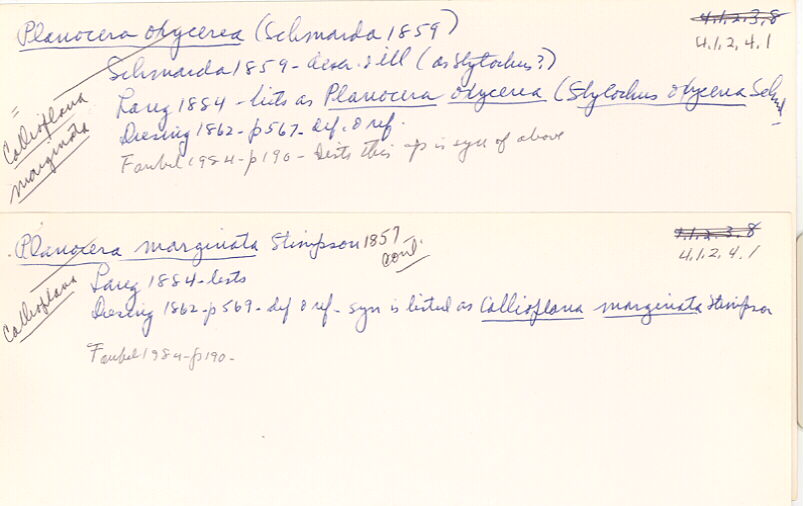 Planocera oxycerea (Schmarda 1859)
4.1.2.3.8
4.1.2.4.1
Schmarda 1859 - descr. & ill (as Stylochus?)
= Callioplana marginata
Lang 1884 - lists as Planocera oxycerea (Stylochus oxycerea Schm
Diesing 1862 - p567 - def. & ref.
Faubel 1984 - p190 - lists this sp is syn of above
Planocera marginata Stimpson 1857
cont.
4.1.2.3.8
4.1.2.4.1
Callioplana
Lang 1884 - lists
Diesing 1862 - p569 - def & ref - syn is listed as Callioplana marginata Stimpson
Faubel 1984 - p190 -